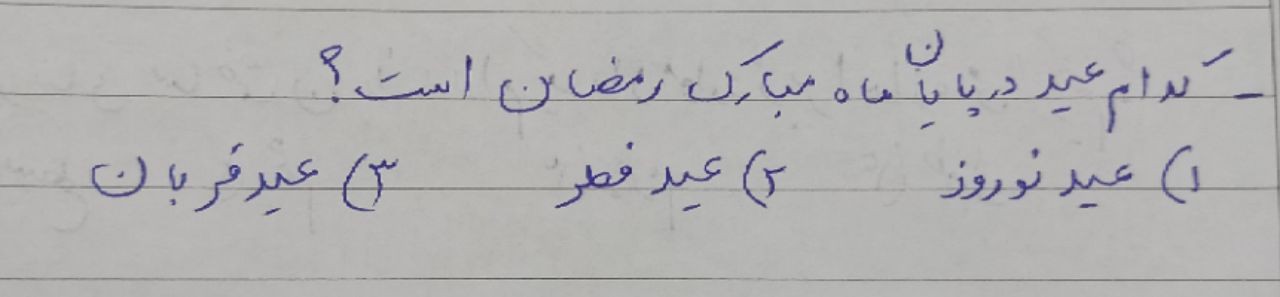 - کدام عید در پایان ماه مبارک رمضان است؟
۱) عید نوروز ۲) عید فطر ۳) عید قربان